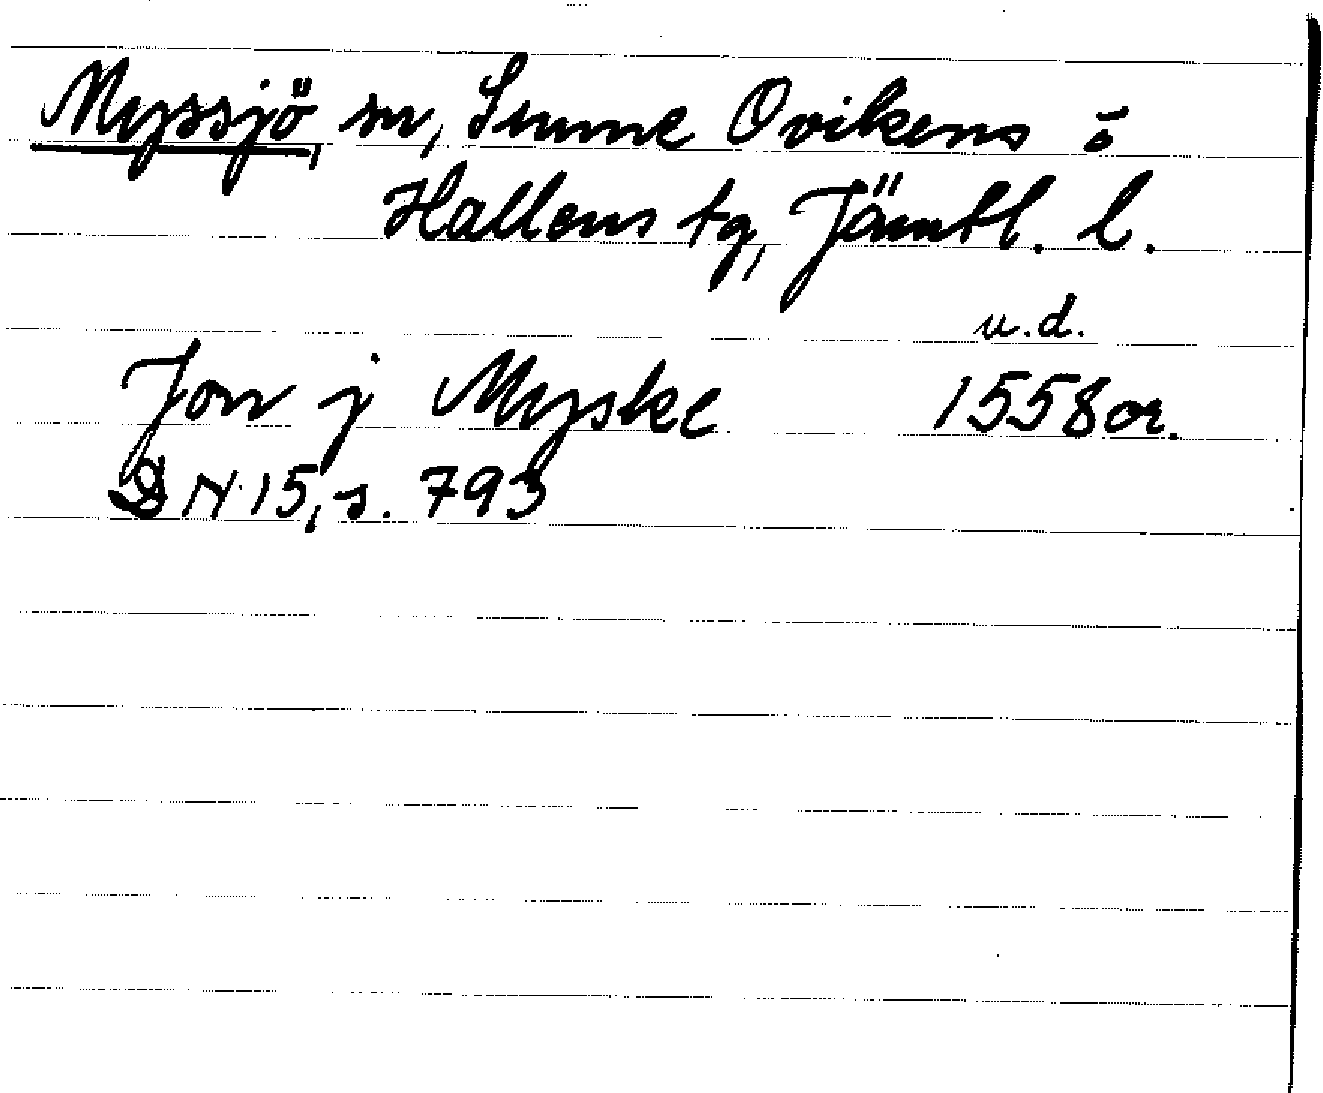 Myssjö sn, Sunne Ovikens o
Hallens tg, Jämtl. l.
u.d.
Jon j Myske 1558 or.
DN 15, s. 793